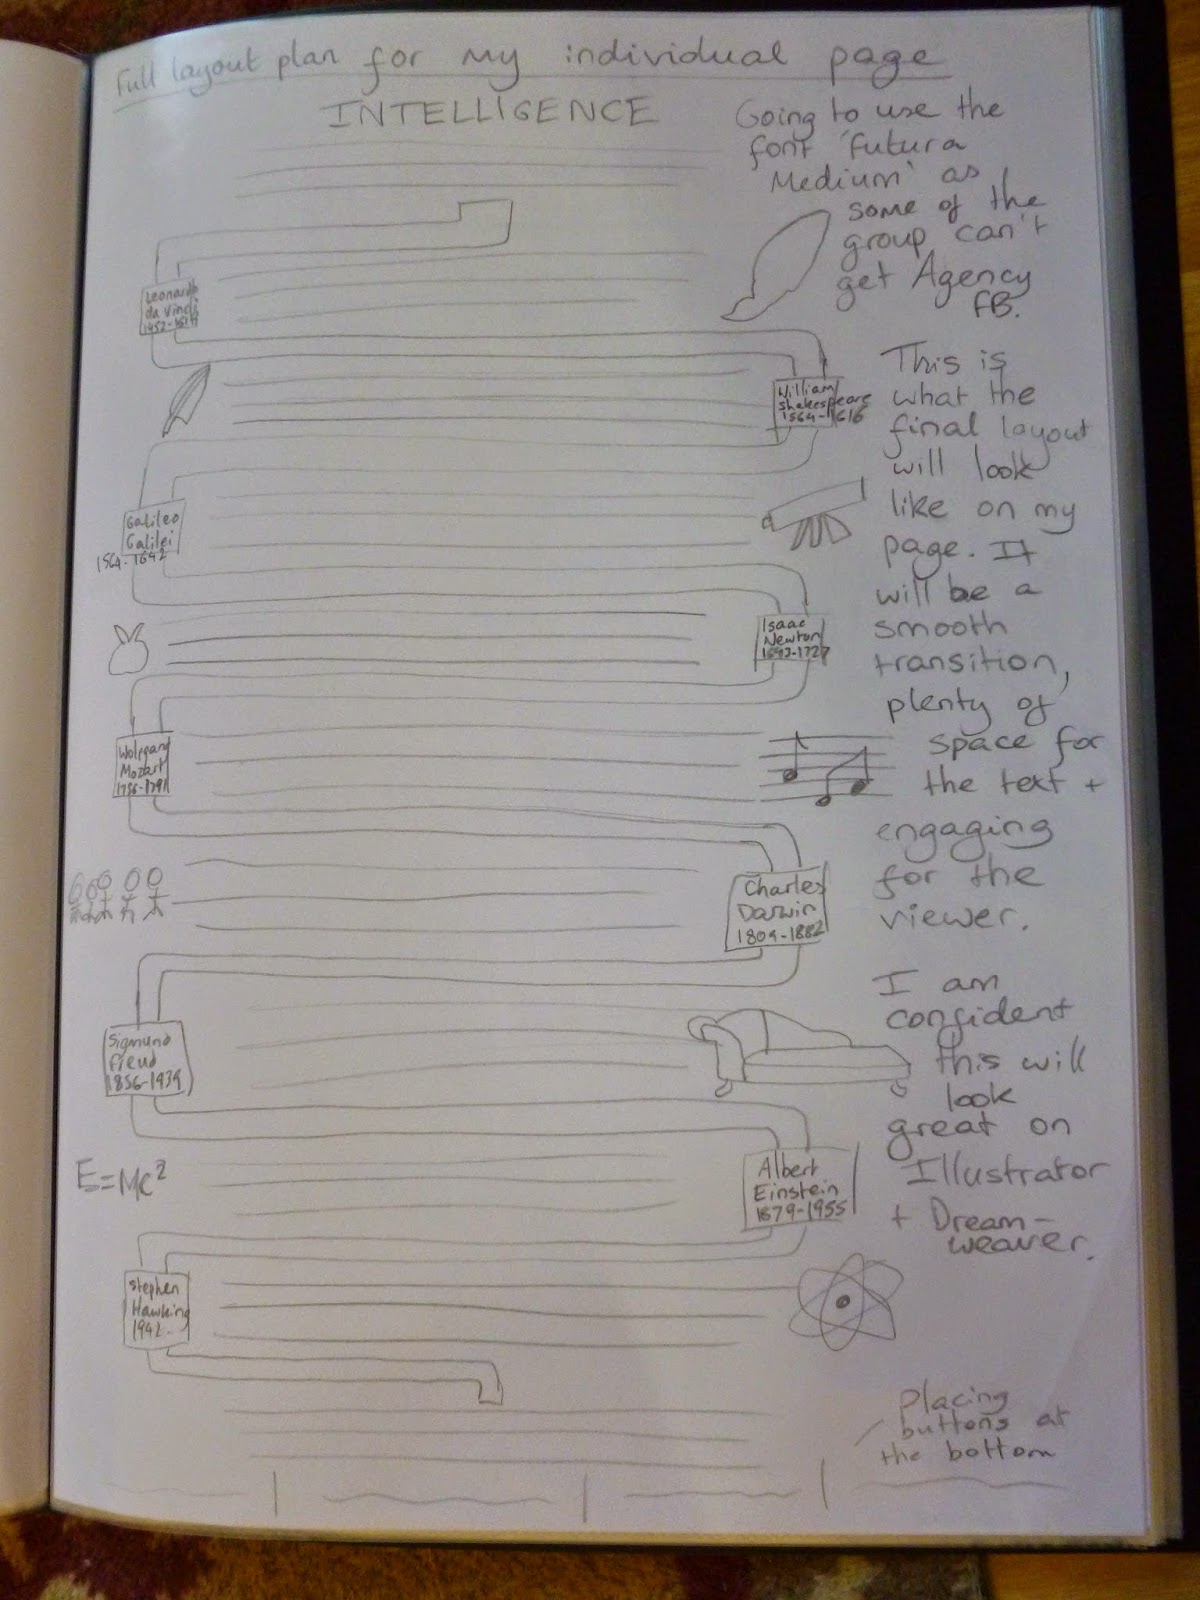 Full layout plan for my individual page
INTELLIGENCE
Going to use the
font 'futura
Medium' as
some of the
group can't
get Agency
FB.
Leonardo
da Vinci
William
Shakespeare
1564-1616
This is
what the
final layout
will look
like on my
page. It
will be a
smooth
transition,
plenty of
space for
the text +
engaging
for the
viewer.
Galileo
Galilei
1564-1642
Isaac
Newton
1643-1727
Wolfgang
Mozart
1756-1791
Charles
Darwin
1809-1882
I am
confident
this will
look
great on
Illustrator
+ Dream-
weaver.
Sigmund
Freud
1856-1939
E=Mc²
Albert
Einstein
1879-1955
Stephen
Hawking
1942-
Placing
buttons at
the bottom